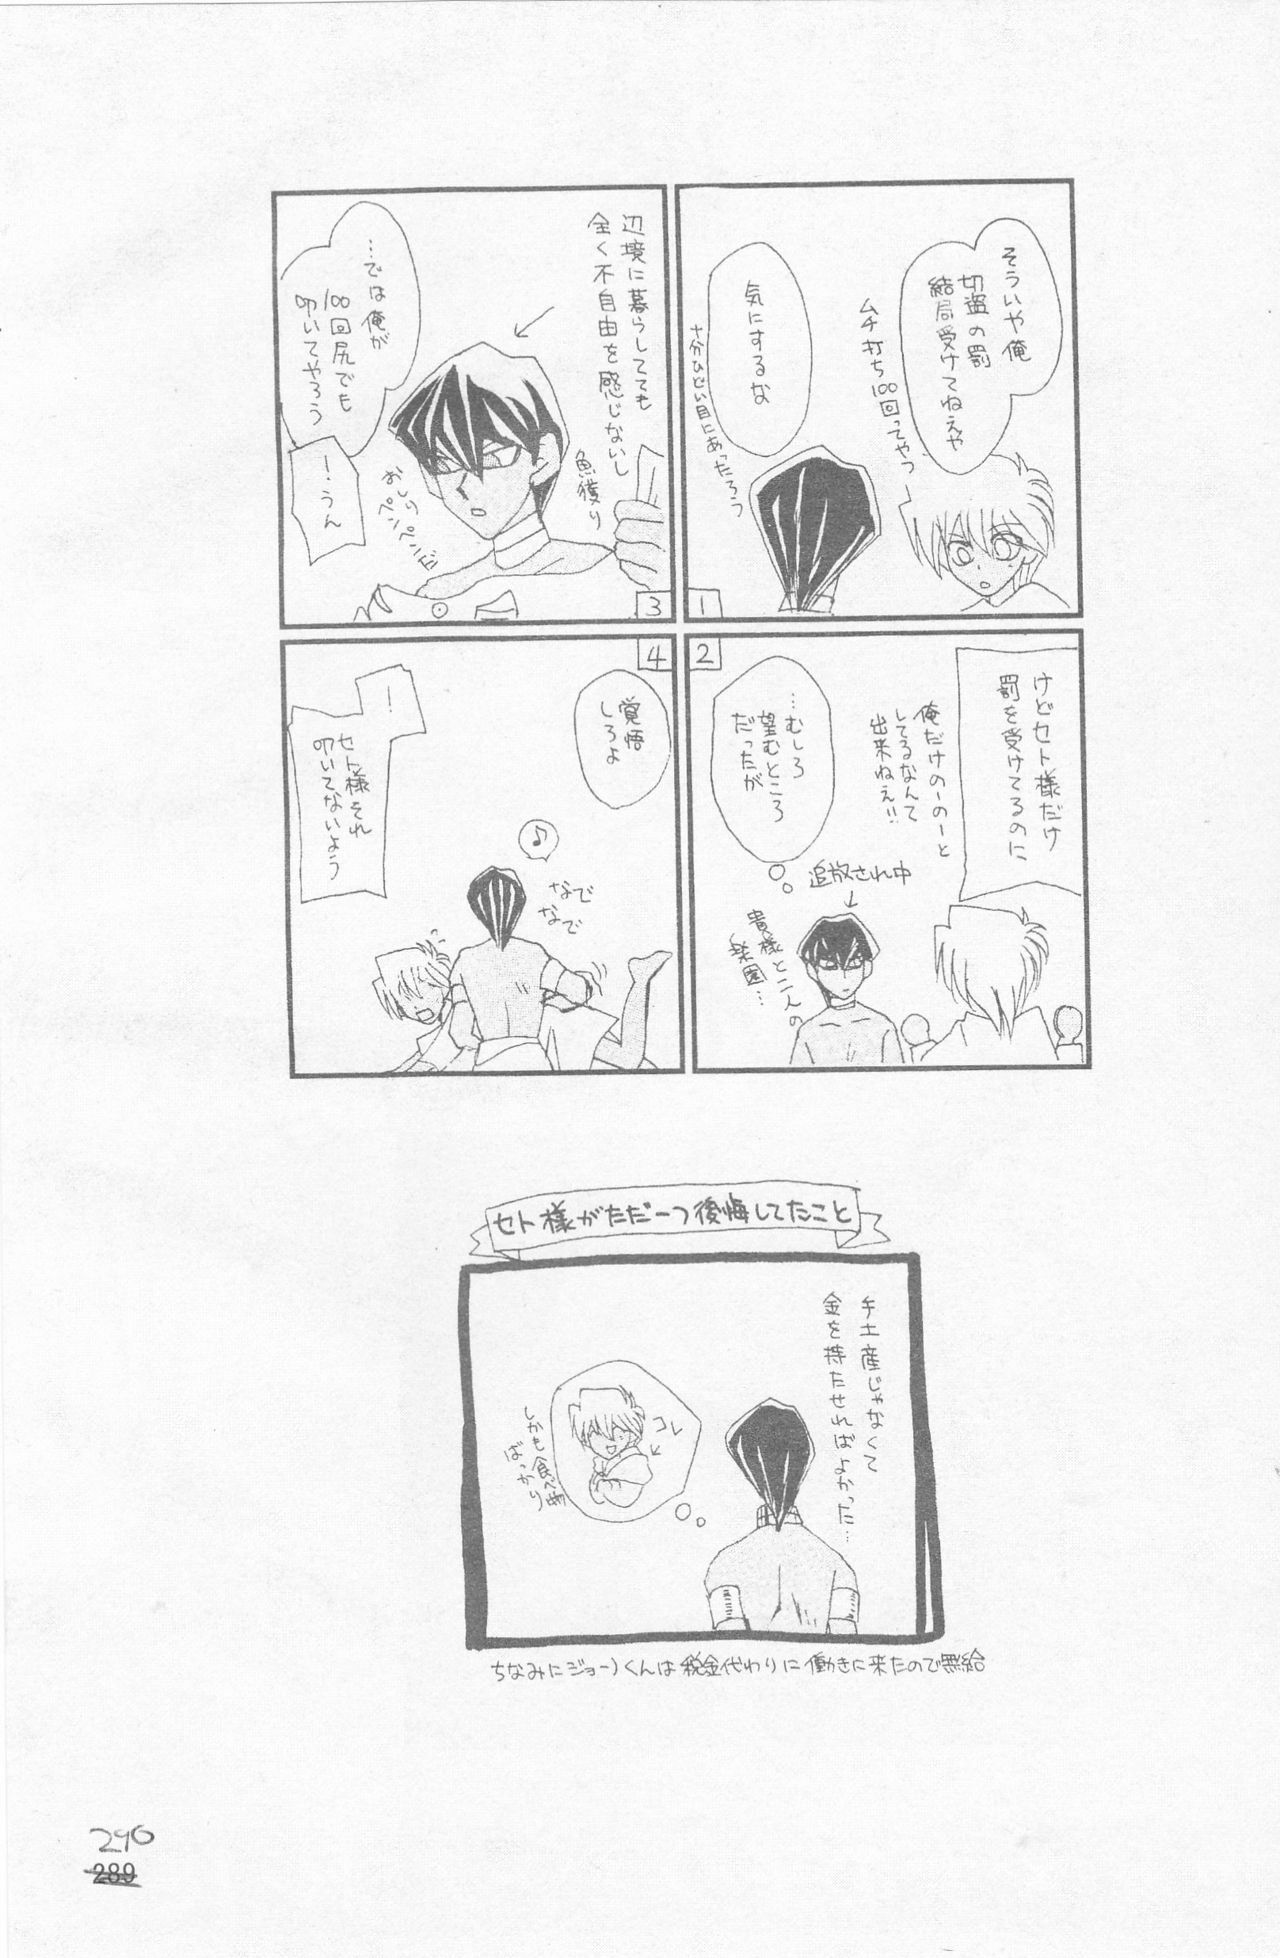 そういや俺
切盗の罰
結局受けてねえや
ムチ打ち100回ってやつ
気にするな
十分ひどい目にあったろう
1
けどセト様だけ
罰を受けてるのに
俺だけのーのーと
してるなんて
出来ねえ!!
…むしろ
望むところ
だったが
追放され中
貴様と二人の
楽園…
2
辺境に暮らしてても
全く不自由を感じないし
魚獲り
…では俺が
100回尻でも
叩いてやろう
おしり
ペンペンだ
!うん
3
覚悟
しろよ
♪
なで
なで
!
セト様それ
叩いてないよう
4
セト様がただ一つ後悔してたこと
手土産じゃなくて
金を持たせればよかった…
コレ
しかも食べ物
ばっかり
ちなみにジョーノくんは税金代わりに働きに来たので無給
290
289